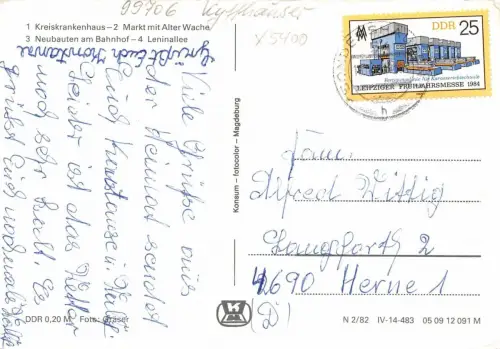 99706 Kyffhäuser
X5400
1 Kreiskrankenhaus – 2 Markt mit Alter Wache
3 Neubauten am Bahnhof – 4 Leninallee
Grüßt Euch Konstanze
Viele Grüße aus
der Heimat sendet
Euch Konstanze u.
Leider ist das Wetter
noch sehr kalt. Es
grüßt Euch nochmals
DDR 0,20 M Foto: Gräser
Konsum - fotocolor - Magdeburg
DDR 25
LEIPZIGER FRÜHJAHRSMESSE 1984
Fam.
Alfred Wittig
Langforth 2
4690 Herne 1
(D)
N 2/82 IV-14-483 05 09 12 091 M